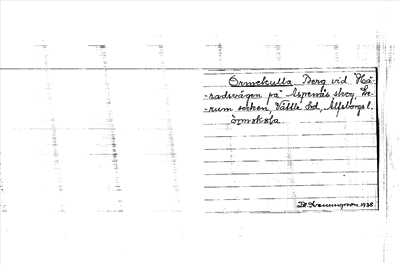 Ormekulla Berg vid Hä-
-radsvägen på Aspenäs skog Le-
-rum socken Vättle hd, Älfsborgs l.
òrməkəla.
1938